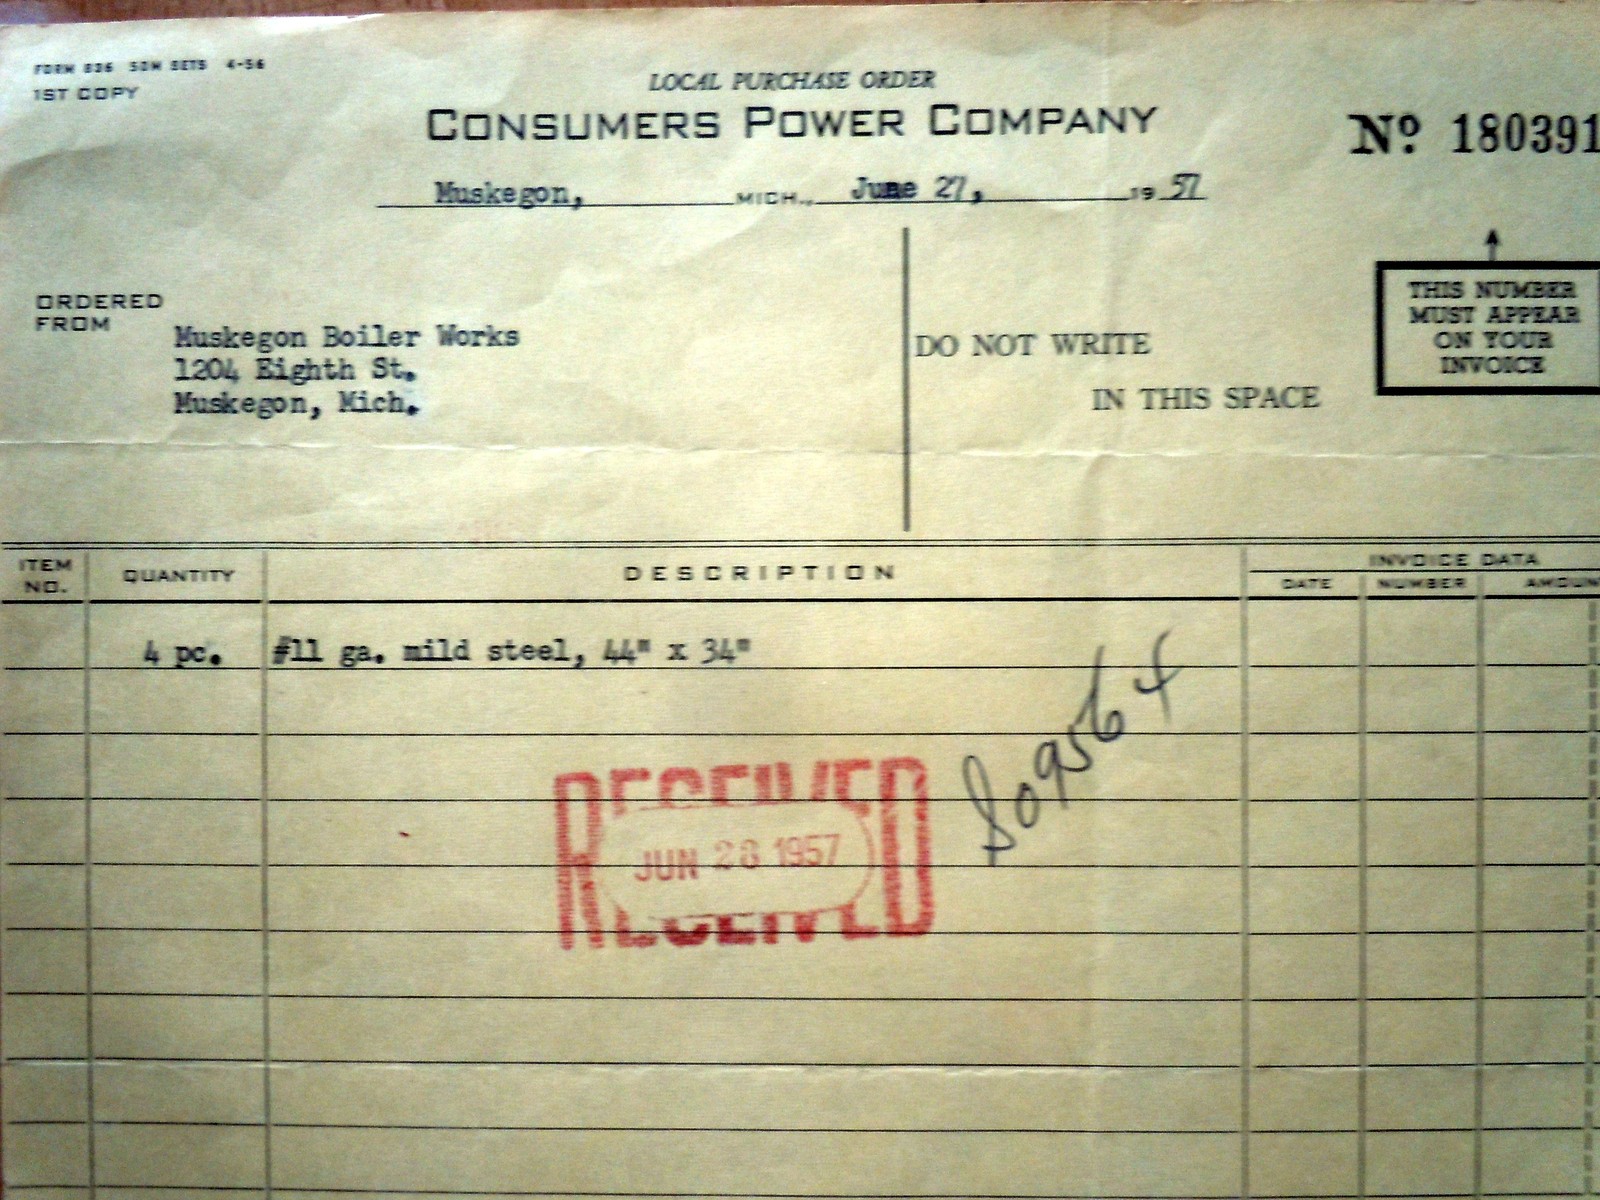 FORM 836 50M SETS 4-56
1ST COPY
LOCAL PURCHASE ORDER
CONSUMERS POWER COMPANY
Nº 180391
Muskegon, MICH., June 27, 19 57
THIS NUMBER
MUST APPEAR
ON YOUR
INVOICE
ORDERED
FROM
Muskegon Boiler Works
1204 Eighth St.
Muskegon, Mich.
DO NOT WRITE
IN THIS SPACE
ITEM
NO.
QUANTITY
DESCRIPTION
INVOICE DATA
DATE
NUMBER
AMOUN
4 pc. #11 ga. mild steel, 44" x 34"
RECEIVED
JUN 28 1957
RECEIVED